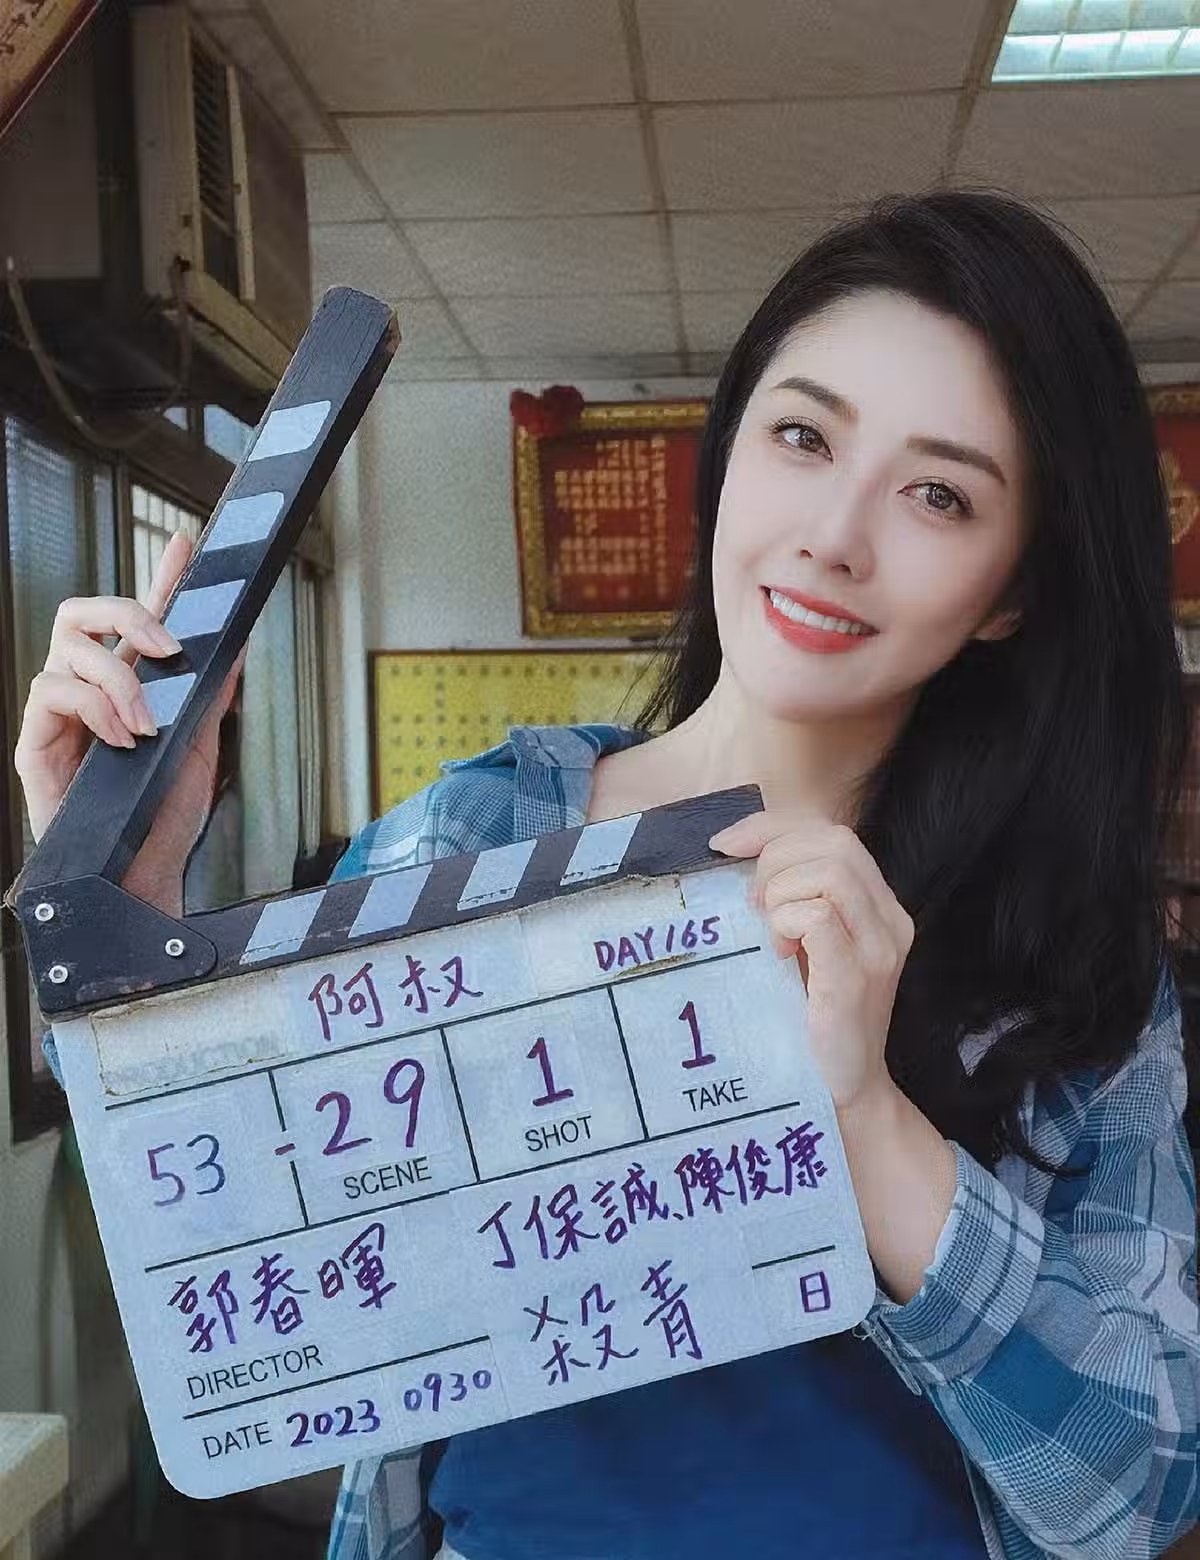 阿叔 DAY 165
53 - 29 1 1
SCENE SHOT TAKE
郭春暉 丁保誠、陳俊康
DIRECTOR 殺青 日
DATE 2023 0930